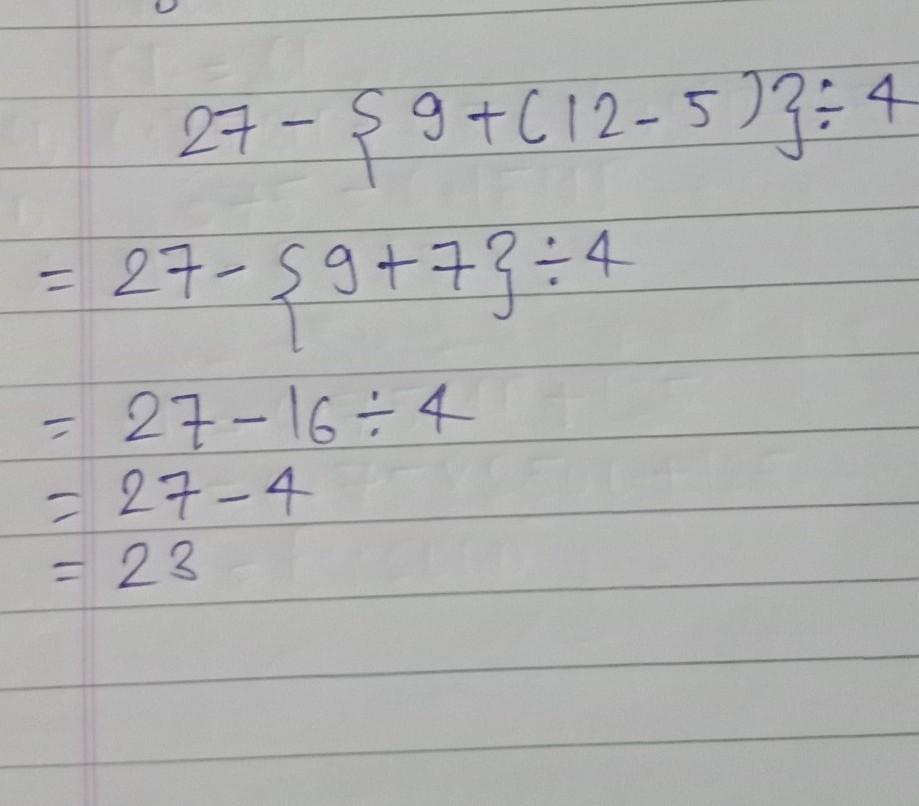 27 - { 9 + ( 12 - 5 ) } ÷ 4
= 27 - { 9 + 7 } ÷ 4
= 27 - 16 ÷ 4
= 27 - 4
= 23